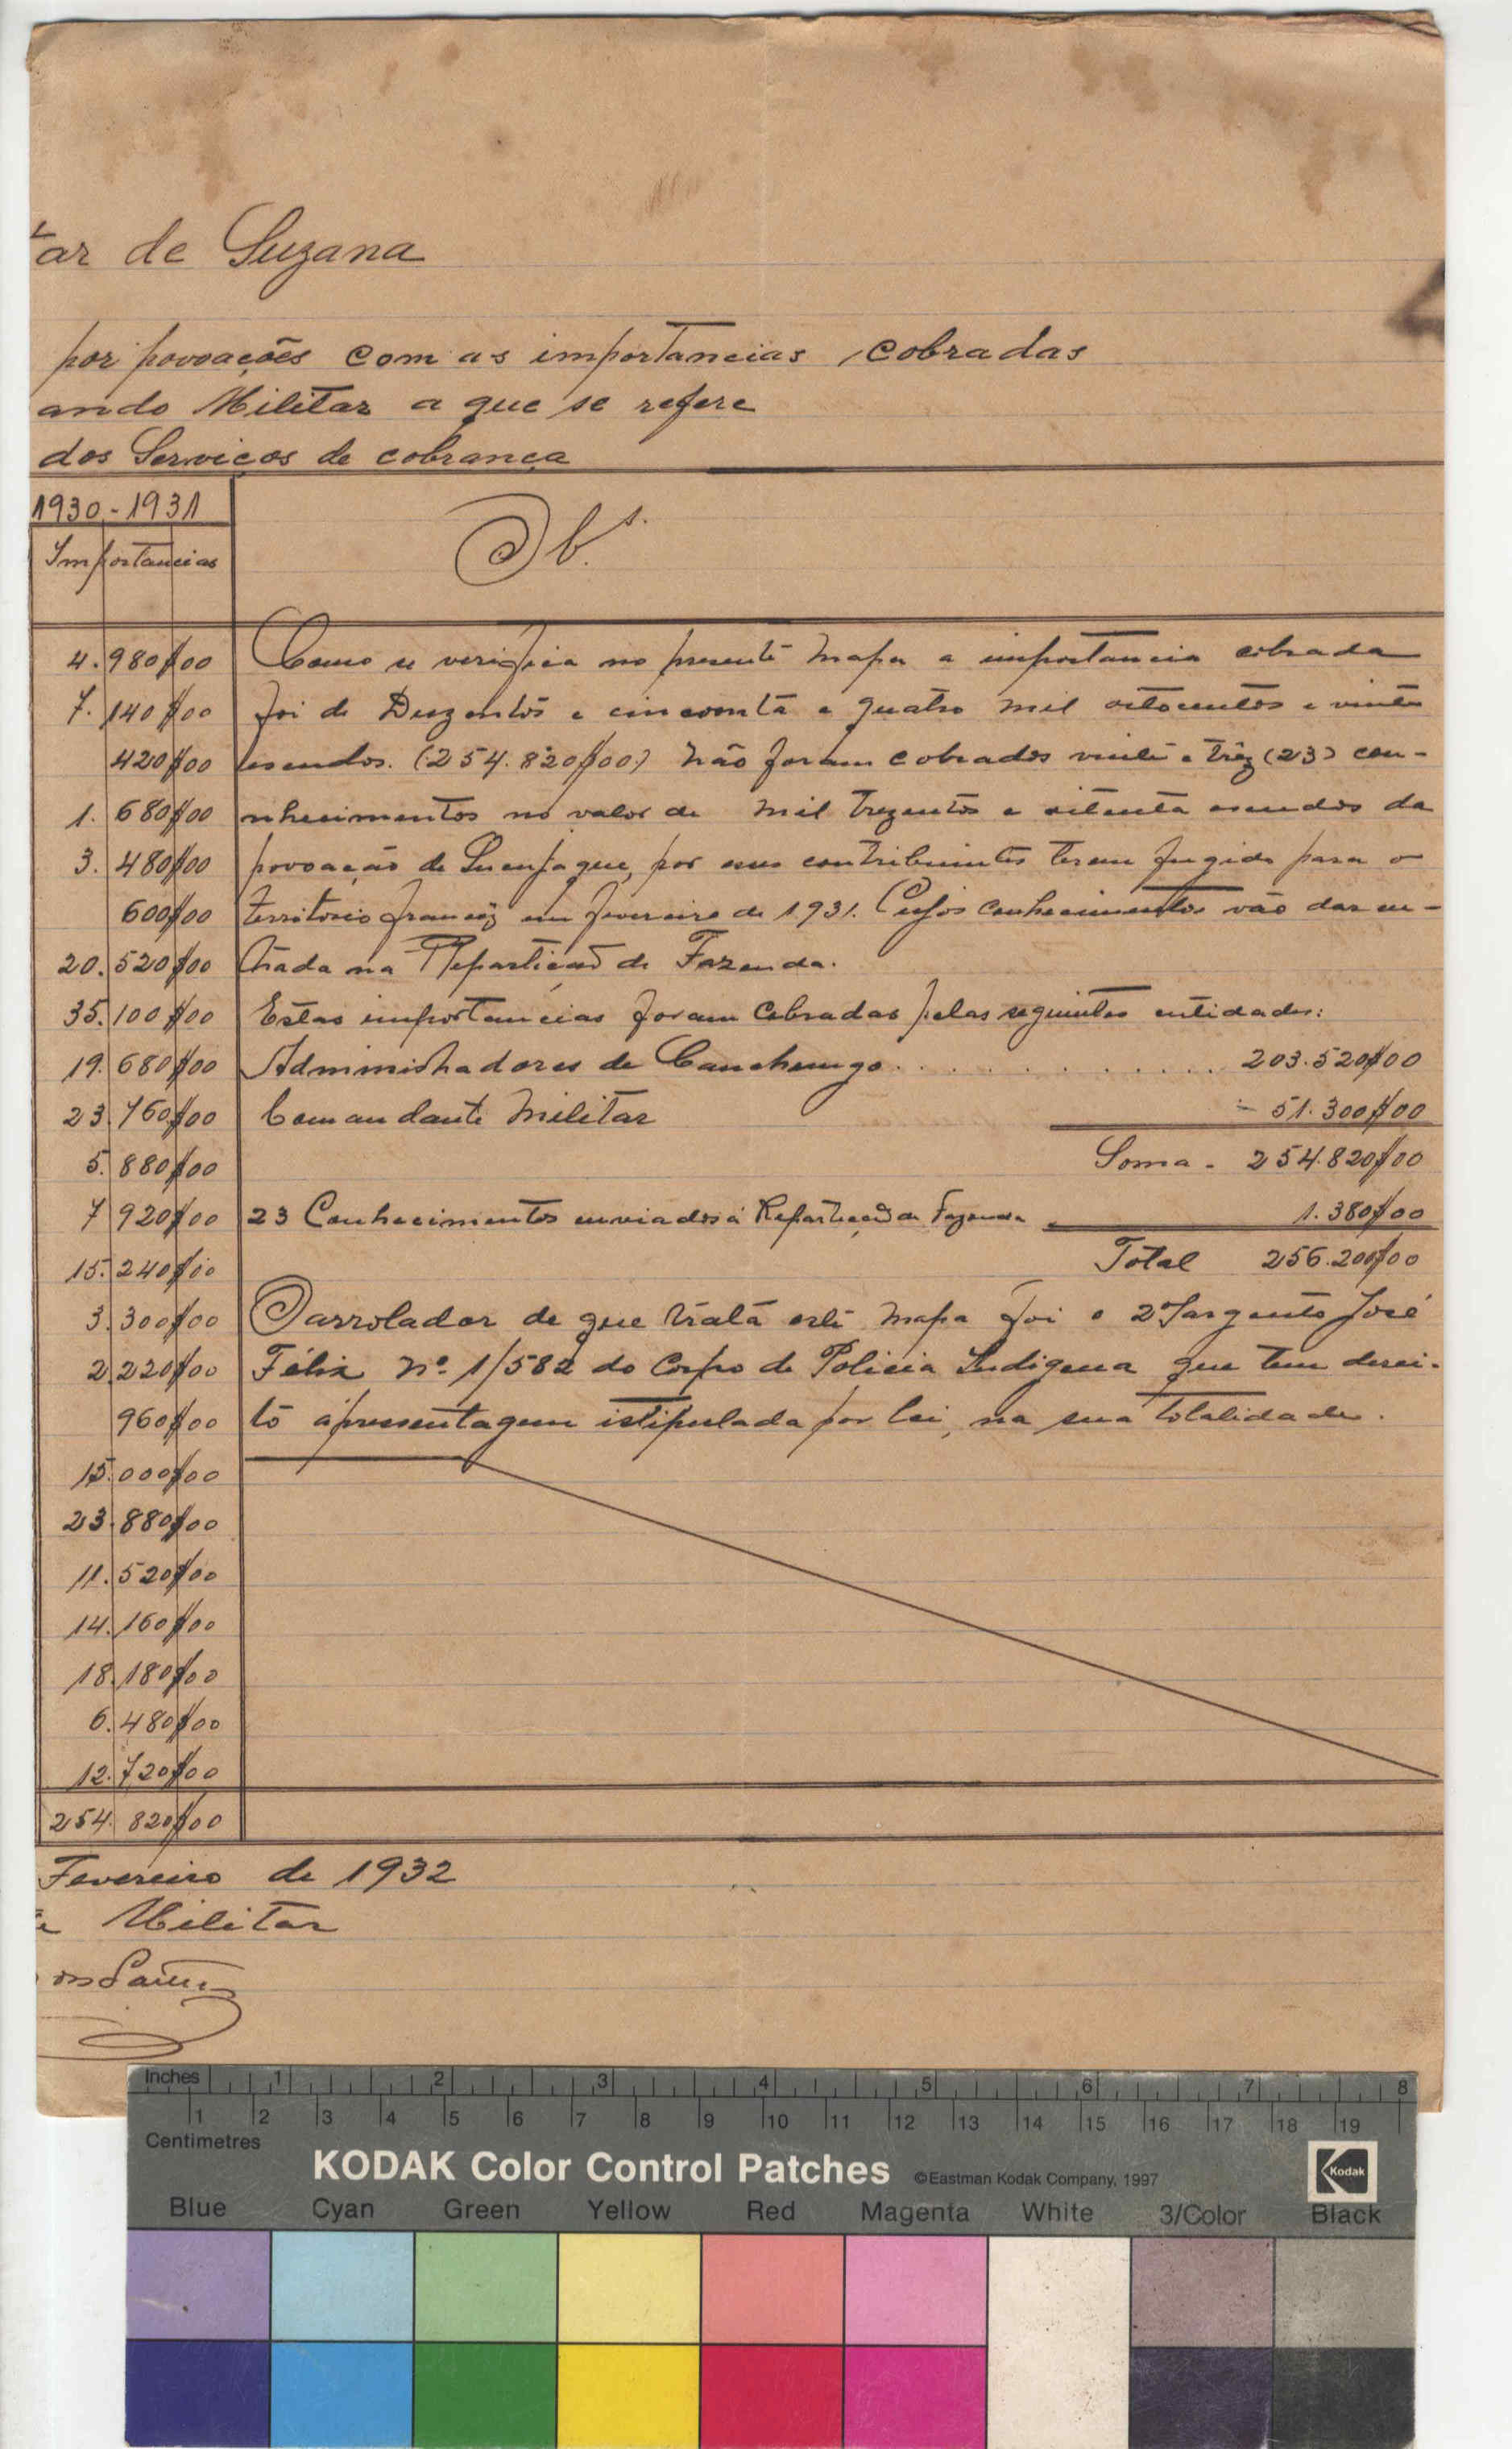 tar de Suzana
por povoações com as importancias cobradas
ando Militar a que se refere
dos Serviços de cobrança
1930-1931
Importancias
Obs.
4.980$00 Como se verifica no presente mapa a importancia cobrada
7.140$00 foi de Duzentos e cincoenta e quatro mil oitocentos e vinte
420$00 escudos. (254.820$00) Não foram cobrados vinte e trêz (23) con-
1.680$00 nhecimentos no valor de mil trezentos e oitenta escudos da
3.480$00 povoação de por seus contribuintes terem fugido para o
600$00 territorio francêz em fevereiro de 1931. Cujos conhecimentos vão dar en-
20.520$00 trada na Repartição de Fazenda.
35.100$00 Estas importancias foram cobradas pelas seguintes entidades:
19.680$00 Administradores de Canchungo. . . . . . . . . . . . 203.520$00
23.760$00 Comandante Militar - 51.300$00
5.880$00 Soma - 254.820$00
7.920$00 23 Conhecimentos enviados á Repartição de Fazenda 1.380$00
15.240$00 Total 256.200$00
3.300$00 O arrolador de que trata este mapa foi o 2º Sargento José
2.220$00 Félix Nº 1/582 do Corpo de Policia Indigena que tem derei-
960$00 to ápresentagem istipulada por lei, na sua totalidade.
15.000$00
23.880$00
11.520$00
14.160$00
18.180$00
6.480$00
12.720$00
254.820$00
Fevereiro de 1932
te Militar
Inches 1 2 3 4 5 6 7 8
1 2 3 4 5 6 7 8 9 10 11 12 13 14 15 16 17 18 19
Centimetres
KODAK Color Control Patches ©Eastman Kodak Company, 1997 Kodak
Blue Cyan Green Yellow Red Magenta White 3/Color Black